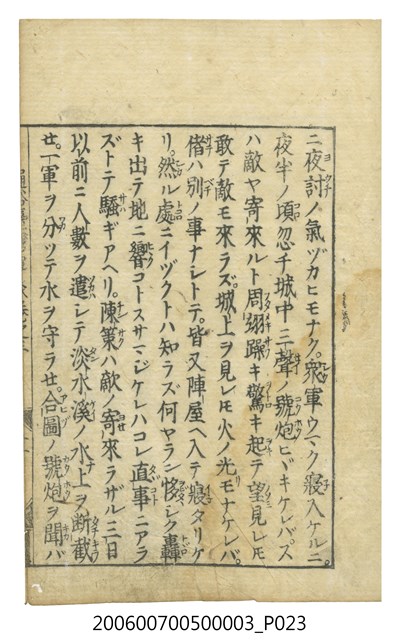 ニ夜討ノ氣ヅカヒモナク。衆軍ウマク寢入ケルニ。
夜半ノ頃忽チ城中ニ三聲ノ號炮ヒヾキケレバ。ス
ハ敵ヤ寄來ルト周章躁キ驚キ起テ望見レ𪜈
敢テ敵モ來ラズ。城上ヲ見レ𪜈火ノ光モナケレバ。
偖ハ別ノ事ナシトテ。皆又陣屋ヘ入テ寢タリケ
リ。然ル處ニイヅクトハ知ラズ何ヤラン夥シク轟
キ出テ地ニ響コトスサマジケレハコレ直事ニアラ
ズトテ騷ギアヘリ。陳策ハ敵ノ寄來ラザル三日
以前ニ人數ヲ遣シテ淡水溪ノ水上ヲ斷截
セ。一軍ヲ分ツテ水ヲ守ラセ。合圖ノ號炮ヲ聞バ
200600700500003_P023